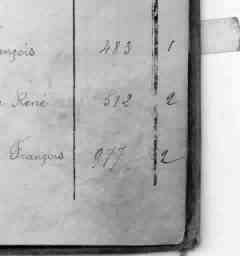 ançois 483 1
René 512 2
François 977 2